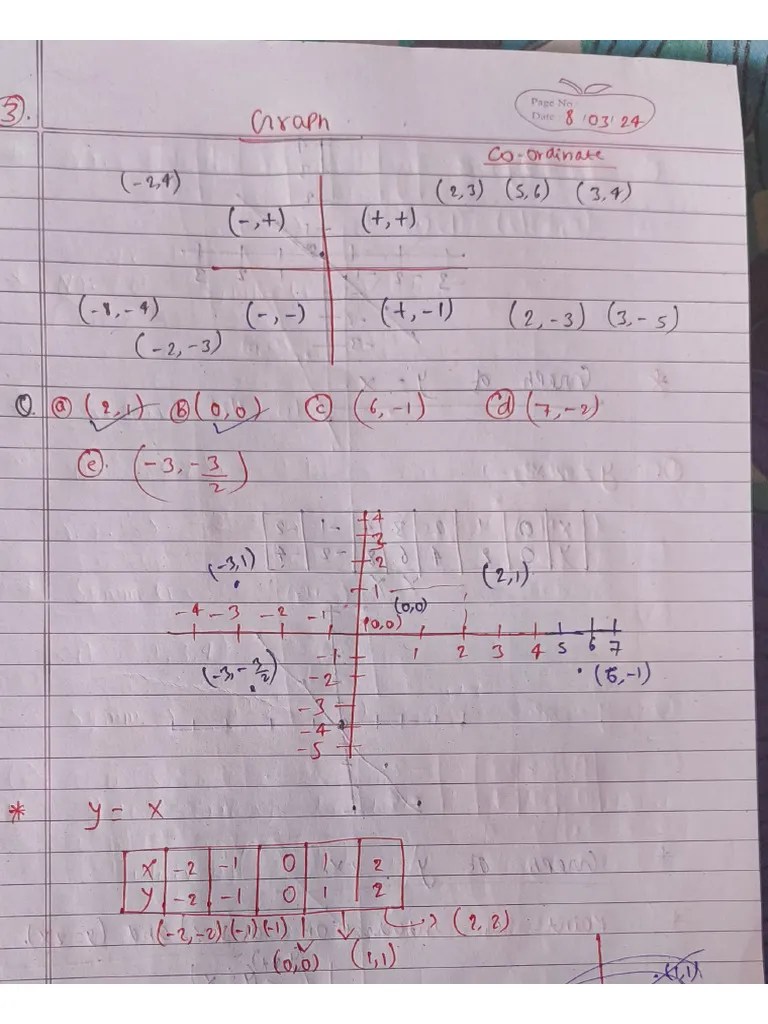 3.
Graph
Page No.
Date 8/03/24
Co-ordinate
(-2,4)
(2,3) (5,6) (3,4)
(-,+) (+,+)
(-,-) (+,-1) (2,-3) (3,-5)
(-2,-3)
Q. (a) (2,1) (B) (0,0) (c) (6,-1) (d) (7,-2)
(e). (-3, -3/2)
4
3
2
1
(-3,1) (2,1)
(0,0)
-4 -3 -2 -1 (0,0) 1 2 3 4 5 6 7
-1
-2
-3
-4
-5
(-3, -3/2) (6,-1)
* y = x
x -2 -1 0 1 2
y -2 -1 0 1 2
(-2,-2) (-1)(-1) (2,2)
(0,0) (1,1)
(1,1)